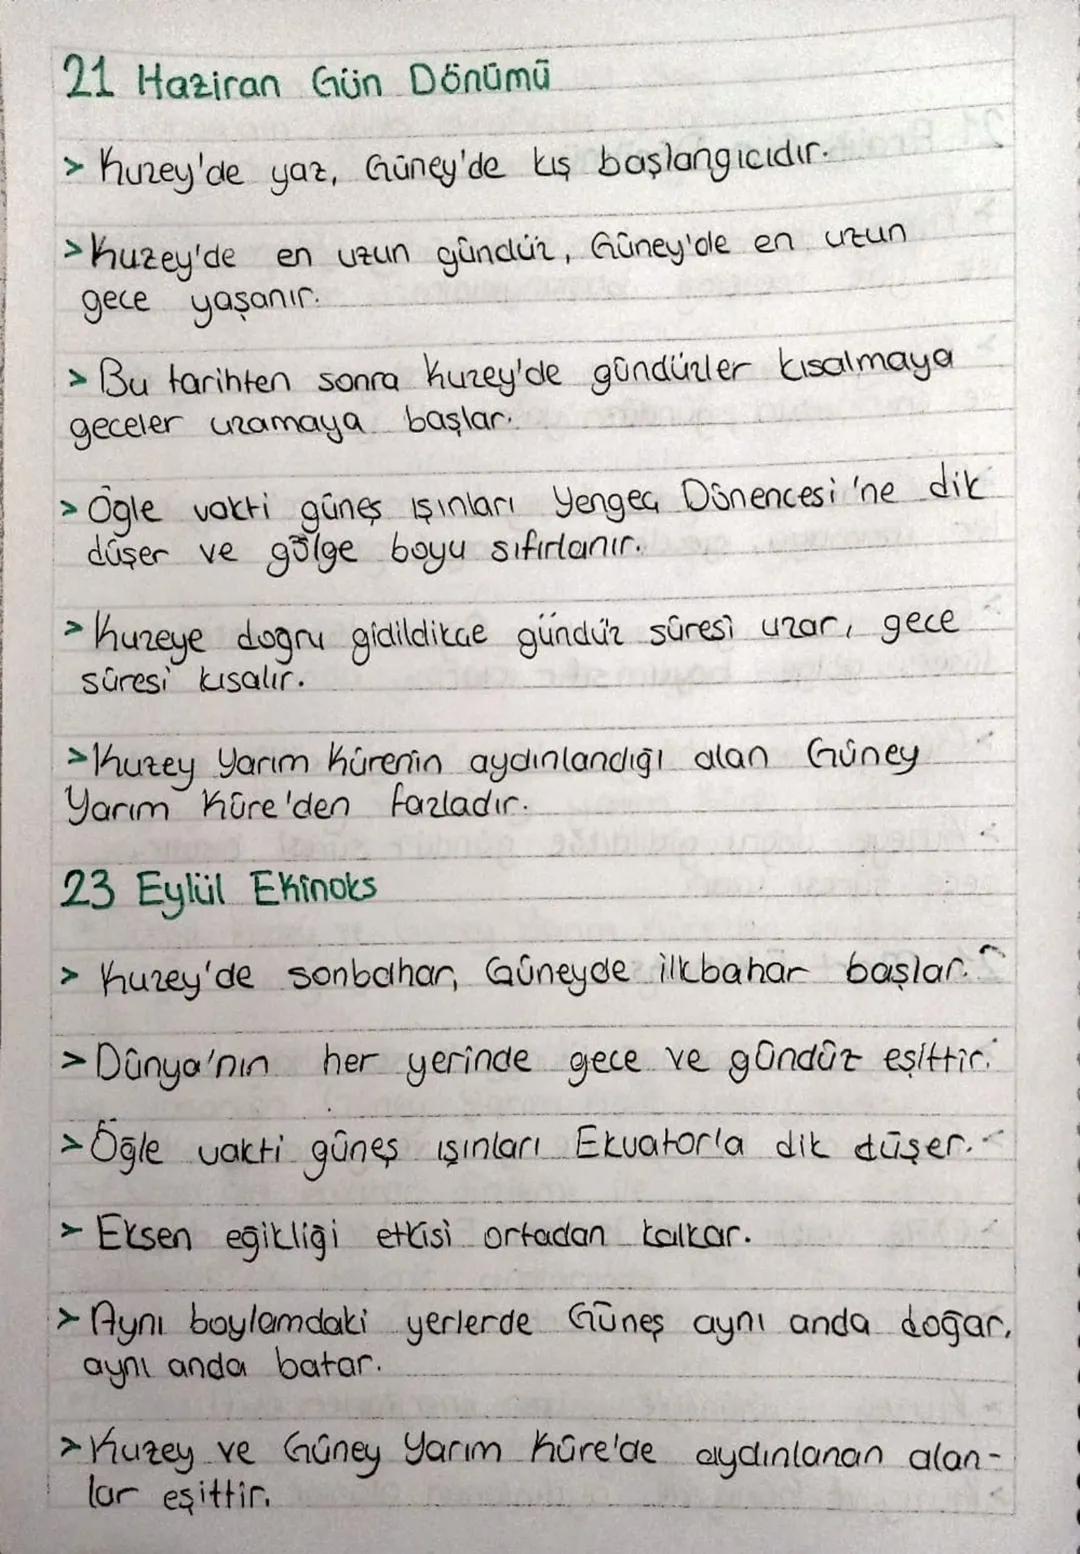 21 Haziran Gün Dönümü
> Kuzey'de yaz, Güney'de kış başlangıcıdır.
> Kuzey'de en uzun gündüz, Güney'de en uzun
gece yaşanır.
> Bu tarihten sonra Kuzey'de gündüzler kısalmaya
geceler uzamaya başlar.
> Öğle vakti güneş ışınları Yengeç Dönencesi'ne dik
düşer ve gölge boyu sıfırlanır.
> Kuzeye doğru gidildikçe gündüz süresi uzar, gece
süresi kısalır.
> Kuzey Yarım Kürenin aydınlandığı alan Güney
Yarım Küre'den fazladır.
23 Eylül Ekinoks
> Kuzey'de sonbahar, Güneyde ilkbahar başlar.
> Dünya'nın her yerinde gece ve gündüz eşittir.
> Öğle vakti güneş ışınları Ekvator'a dik düşer.
> Eksen eğikliği etkisi ortadan kalkar.
> Aynı boylamdaki yerlerde Güneş aynı anda doğar,
aynı anda batar.
> Kuzey ve Güney Yarım Küre'de aydınlanan alan-
lar eşittir.